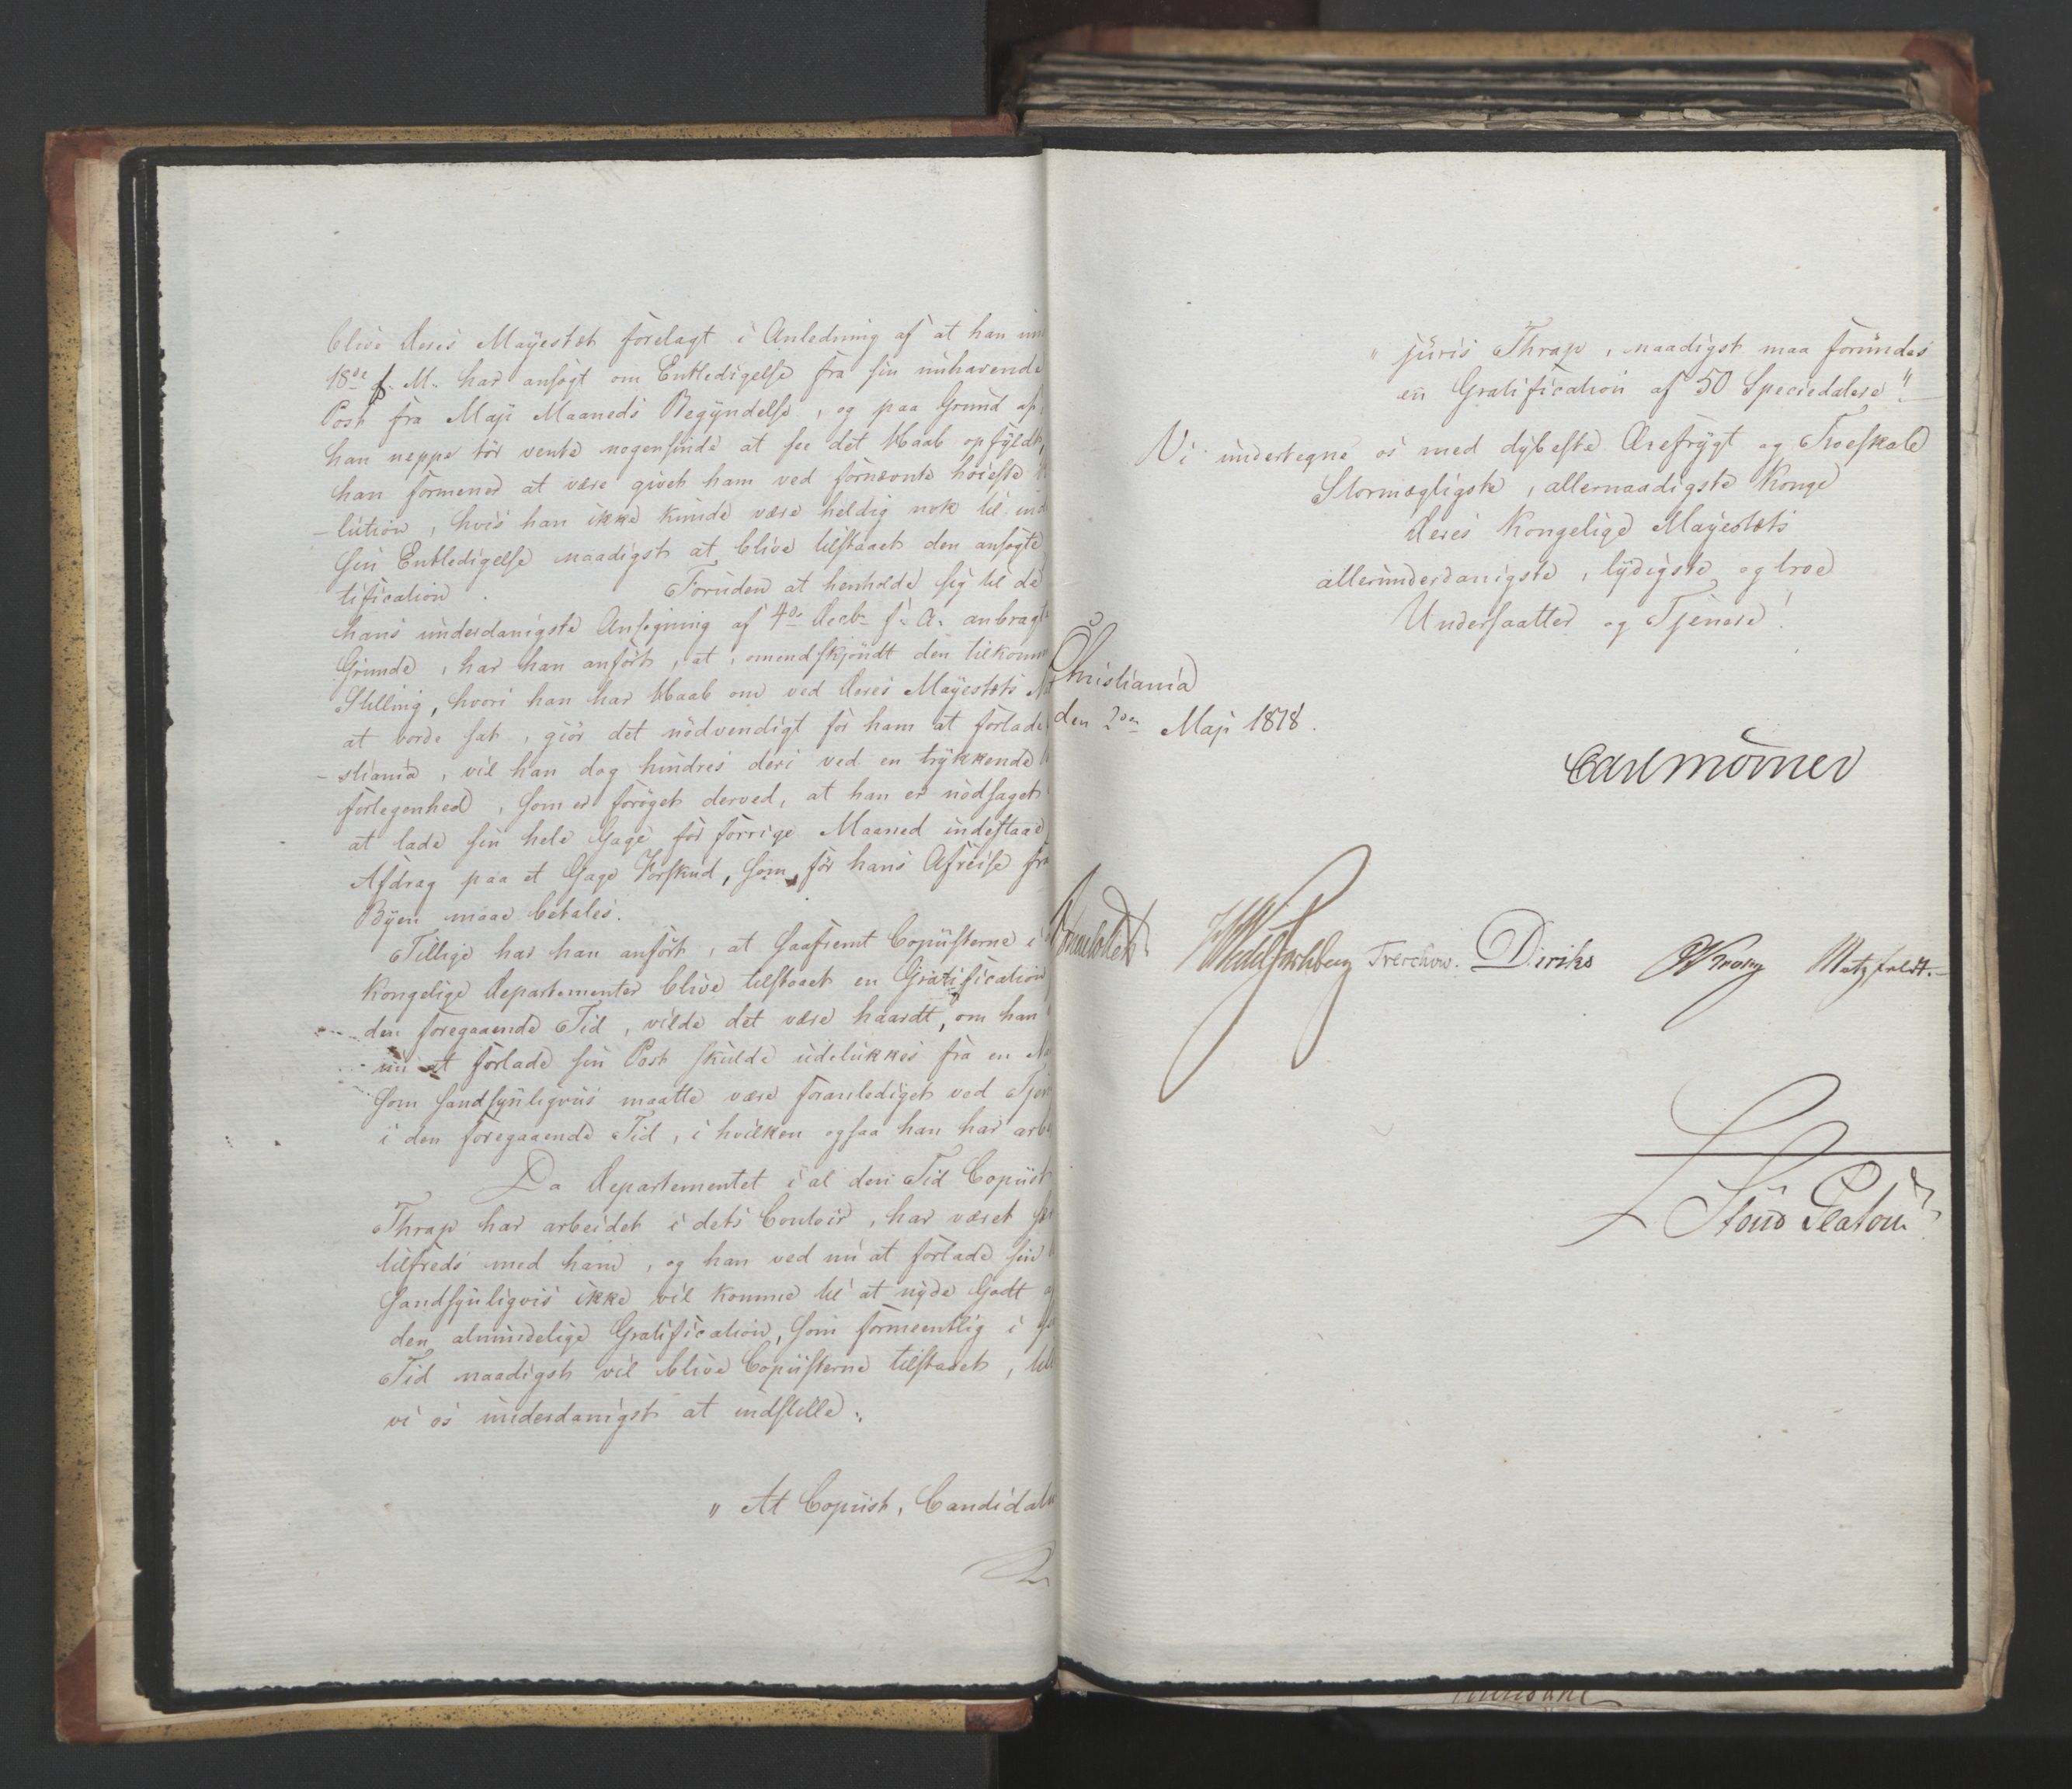 blive Deres Mayestet forelagt i Anledning af at han un
18de f. M. har ansøgt om Entledigelse fra sin nuhavende
Post fra Maji Maaneds Begyndelse, og paa Grund af,
han neppe tör vente nogensinde at see det Haab opfyldt,
han formener at være givet ham ved fornævnte höieste
-lution, hvis han ikke kunde være heldig nok til ind
sin Entledigelse naadigst at blive tilstaaet den ansøgte
tification. Foruden at henholde sig til de
hans underdanigste Ansøgning af 4de Decbr f. A. anbragte
Grunde, har han anfört, at, omendskjöndt den tilkomm
Stilling, hvori han har Haab om ved Deres Mayestets Na
at vorde sat, giör det nödvendigt for ham at forlade
-stiania, vil han dog hindres deri ved en trykkende
forlegenhed, som er foröget derved, at han er nödsaget
at lade sin hele Gage for forrige Maaned indestaae
Afdrag paa et Gage Forskud, som för hans Afreise fra
Byen maae betales.
Tillige har han anfört, at saafremt Copiisterne i
Kongelige Departementer blive tilstaaet en Gratification
den foregaaende Tid, vilde det være haardt, om han
nu at forlade sin Post skulde udelukkes fra en Na
som sandsynligviis maatte være foranlediget ved Tjen
i den foregaaende Tid, i hvilken ogsaa han har arbe
Da Departementet i al den Tid Copiist
Thrap har arbeidet i dets Contoir, har været
tilfreds med ham, og han ved nu at forlade sin
sandsynligvis ikke vil komme til at nyde Godt
den almindelige Gratification, som formeentlig i
Tid naadigst vil blive Copiisterne tilstaaet,
vi os underdanigst at indstille:
" At Copiist, Candidatus
" juris Thrap, naadigst maa forundes
en Gratification af 50 Speciedalere"!
Vi undertegne os med dybeste Ærefrygt og Troeskab
Stormægtigste, allernaadigste Konge
Deres Kongelige Mayestets
allerunderdanigste, lydigste og troe
Undersaatter og Tjenere!
Christiania
den 2den Maji 1818.
Carl Mörner
Sommerhielm Wedel Jarlsberg Treschow. Diriks Krohg Motzfeldt.
Stoud Platou